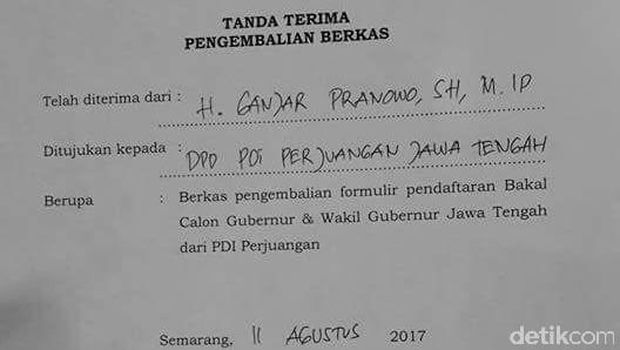 TANDA TERIMA
PENGEMBALIAN BERKAS
Telah diterima dari : H. GANJAR PRANOWO, SH, M.IP
Ditujukan kepada : DPD PDI PERJUANGAN JAWA TENGAH
Berupa : Berkas pengembalian formulir pendaftaran Bakal
Calon Gubernur & Wakil Gubernur Jawa Tengah
dari PDI Perjuangan
Semarang, 11 AGUSTUS 2017
detikcom